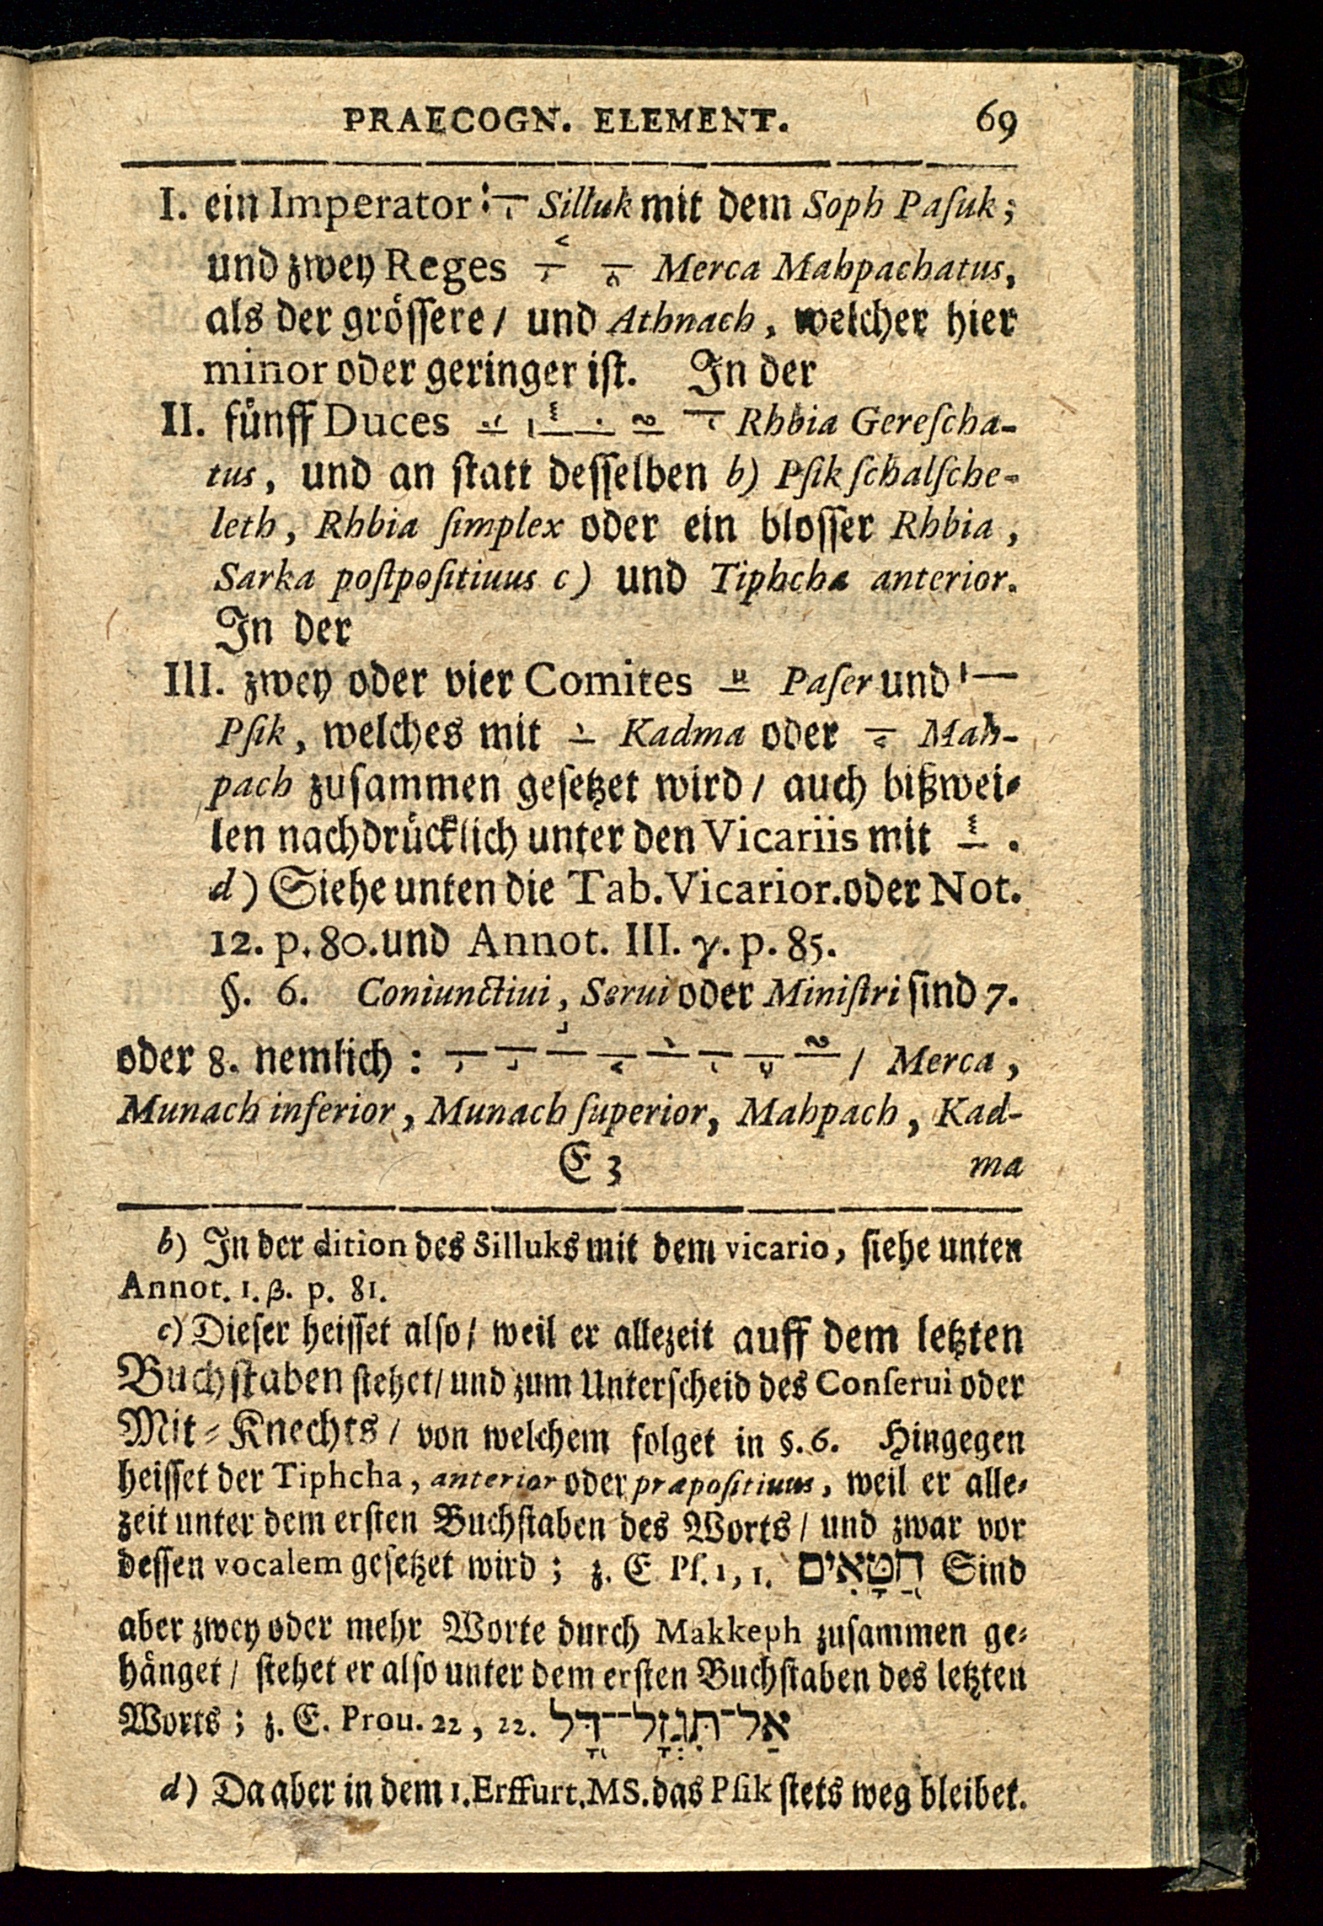 PRAECOGN. ELEMENT. 69
I. ein Imperator Silluk mit dem Soph Paſuk;
und zwey Reges Merca Mahpachatus,
als der gröſſere / und Athnach, welcher hier
minor oder geringer iſt. In der
II. fünff Duces Rhbia Gereſcha-
tus, und an ſtatt deſſelben b) Pſik ſchalſche-
leth, Rhbia ſimplex oder ein bloſſer Rhbia,
Sarka poſtpoſitiuus c) und Tiphcha anterior.
In der
III. zwey oder vier Comites Paſer und
Pſik, welches mit Kadma oder Mah-
pach zuſammen geſetzet wird / auch bißwei-
len nachdrücklich unter den Vicariis mit .
d) Siehe unten die Tab. Vicarior. oder Not.
12. p. 80. und Annot. III. γ. p. 85.
§. 6. Coniunctiui, Serui oder Miniſtri ſind 7.
oder 8. nemlich : / Merca,
Munach inferior, Munach ſuperior, Mahpach, Kad-
E 3 ma
b) In der dition des Silluks mit dem vicario, ſiehe unten
Annot. 1. β. p. 81.
c) Dieſer heiſſet alſo / weil er allezeit auff dem letzten
Buchſtaben ſtehet / und zum Unterſcheid des Conſerui oder
Mit-Knechts / von welchem folget in §. 6. Hingegen
heiſſet der Tiphcha, anterior oder præpoſitiuus, weil er alle-
zeit unter dem erſten Buchſtaben des Worts / und zwar vor
deſſen vocalem geſetzet wird ; z. E Pſ. 1, 1. חַטָּאִים Sind
aber zwey oder mehr Worte durch Makkeph zuſammen ge-
hänget / ſtehet er alſo unter dem erſten Buchſtaben des letzten
Worts ; z. E. Prou. 22, 22. אַל־תִּגְזָל־דָּל
d) Da aber in dem 1. Erffurt. MS. das Pſik ſtets weg bleibet.